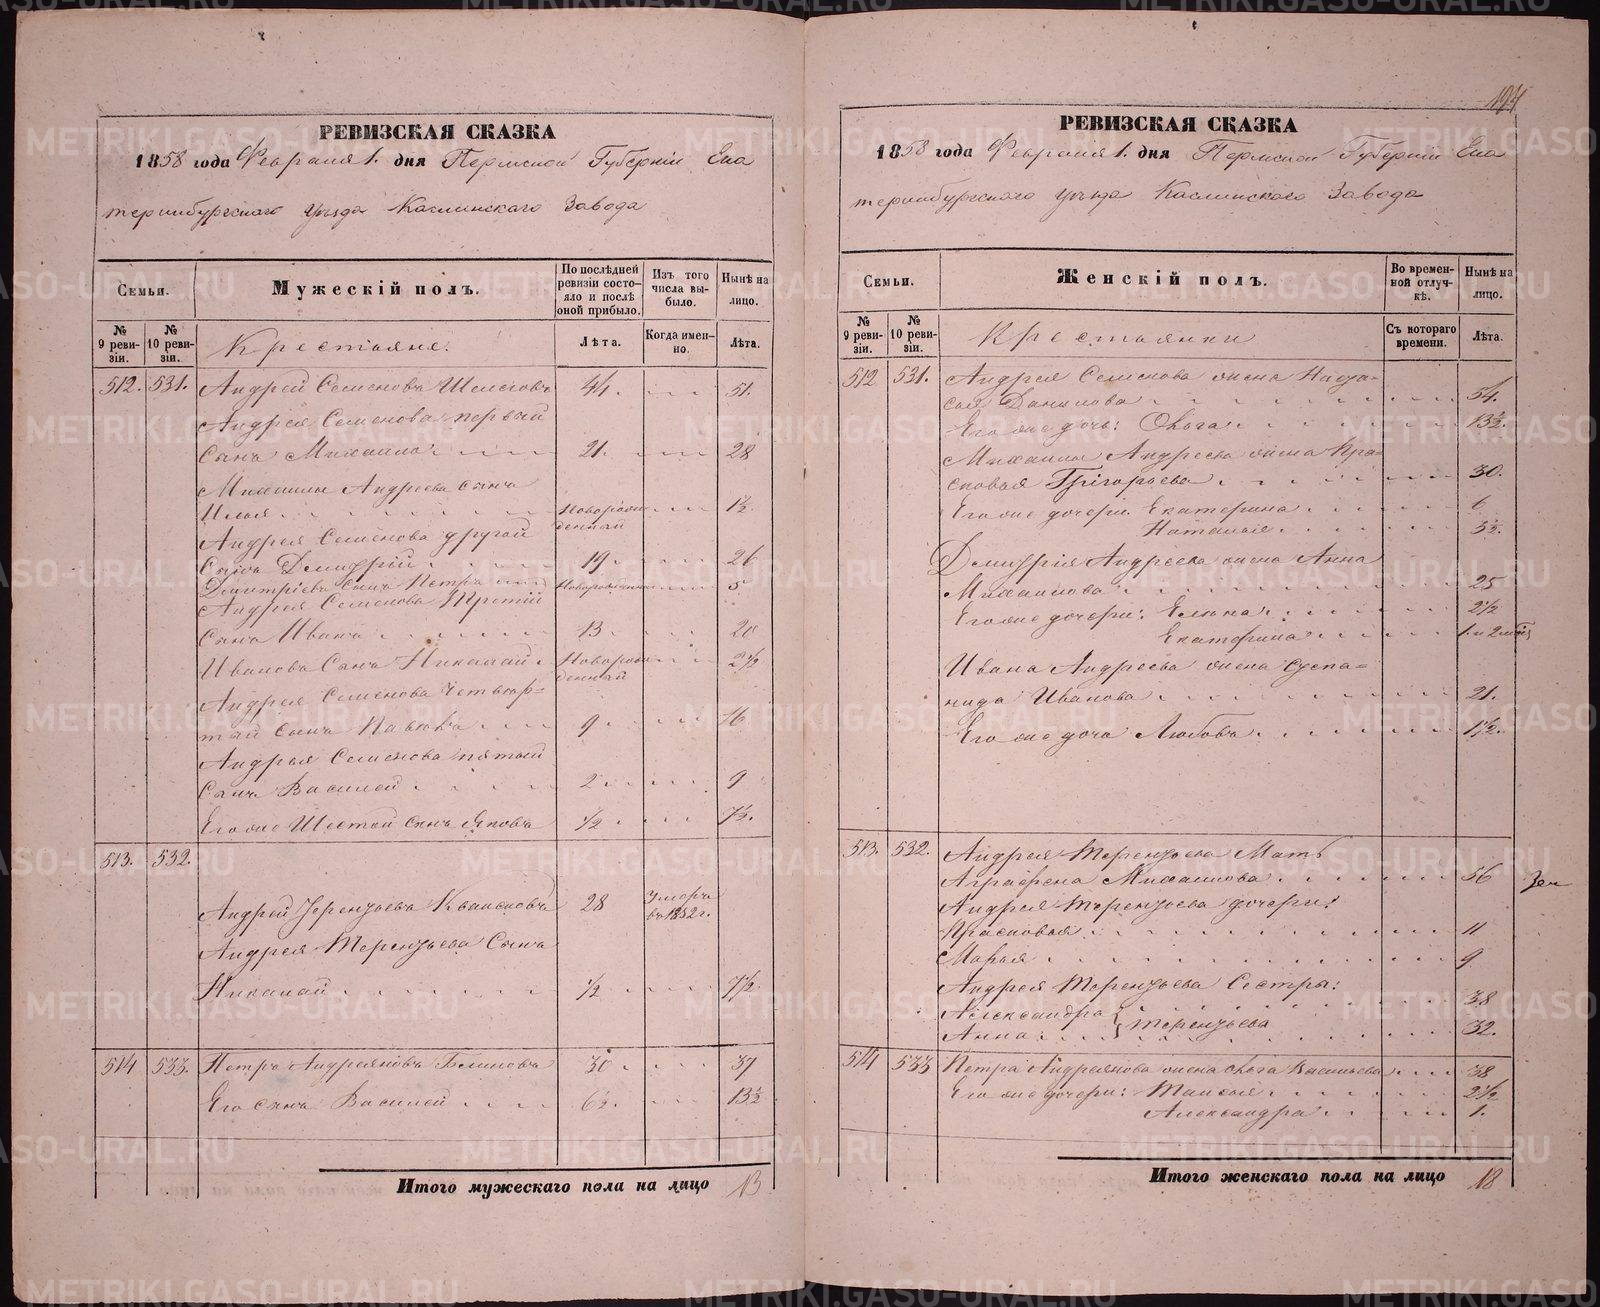 РЕВИЗСКАЯ СКАЗКА
1858 года Февраля 1. дня Пермской Губерніи Ека
теринбургскаго уѣзда Каслинскаго Завода
Семьи.
Мужескій полъ.
По послѣдней ревизіи состояло и послѣ оной прибыло.
Изъ того числа выбыло.
Нынѣ на лицо.
№ 9 ревизіи.
№ 10 ревизіи.
Крестьяне.
Лѣта.
Когда именно.
Лѣта.
512. 531. Андрей Семеновъ 44. 51.
Андрея Семенова первый
Сынъ Михаило 21. 28
Михаилы Андреева Сынъ
Илья Новорожденный 1½
Андрея Семенова другой
Сынъ Дмитрій 19 26
Дмитріева Сынъ Петръ Новорожденный 5
Андрея Семенова Третій
Сынъ Иванъ 13 20
Иванова Сынъ Николай Новорожденный 2½
Андрея Семенова Четвер-
тый Сынъ Павелъ 9 16
Андрея Семенова пятый
Сынъ Василей 2 9
Его же Шестой Сынъ Яковъ ½ 7½
513. 532.
Андрей Терентьевъ 28 Умеръ въ 1852 г.
Андрея Терентьева Сынъ
Николай ½ 7½
514 533. Петръ Андреяновъ Блиновъ 30 37
Его Сынъ Василей 6½ 13½
Итого мужескаго пола на лицо 13
197
РЕВИЗСКАЯ СКАЗКА
1858 года Февраля 1. дня Пермской Губерніи Ека
теринбургскаго уѣзда Каслинскаго Завода
Семьи.
Женскій полъ.
Во временной отлучкѣ.
Нынѣ на лицо.
№ 9 ревизіи.
№ 10 ревизіи.
Крестьянки
Съ котораго времени.
Лѣта.
512 531. Андрея Семенова жена Наста-
сья Данилова 54.
Его же дочь: Ольга 13½.
Михаилы Андреева жена Пра-
сковья Григорьева 30.
Его же дочери: Екатерина 6
Наталья 3½.
Дмитрія Андреева жена Анна
Михаилова 25
Его же дочери: Елена 2½
Екатерина 1. и 2 мѣс
Ивана Андреева жена Степа-
нида Иванова 21.
Его же дочь Любовь 1½.
513. 532. Андрея Терентьева Мать
Аграфена Михаилова 56
Андрея Терентьева дочери:
Прасковья 11
Марья 9
Андрея Терентьева Сестры:
Александра 38
Анна Терентьева 32.
514 533 Петра Андреянова жена Ольга Васильева 38
Его же дочери: Таисья 2½
Александра 1.
Итого женскаго пола на лицо 18
METRIKI.GASO-URAL.RU